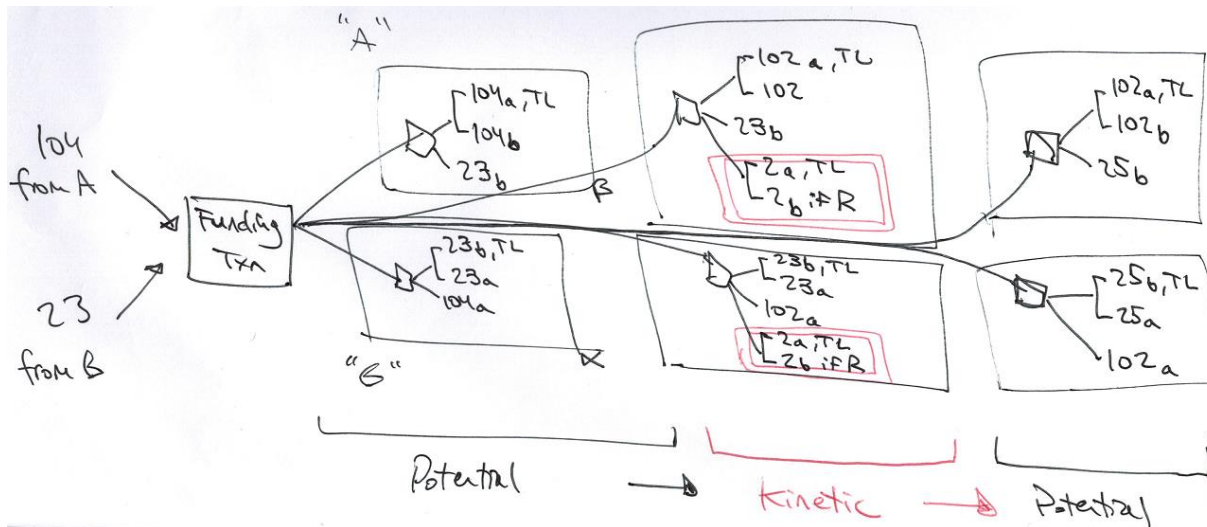 "A"
104
from A
23
from B
Funding
Txn
104a, TL
104b
23b
B
23b, TL
23a
104a
"B"
102a, TL
102
23b
2a, TL
2b if R
23b, TL
23a
102a
2a, TL
2b if R
102a, TL
102b
25b
25b, TL
25a
102a
Potential
Kinetic
Potential